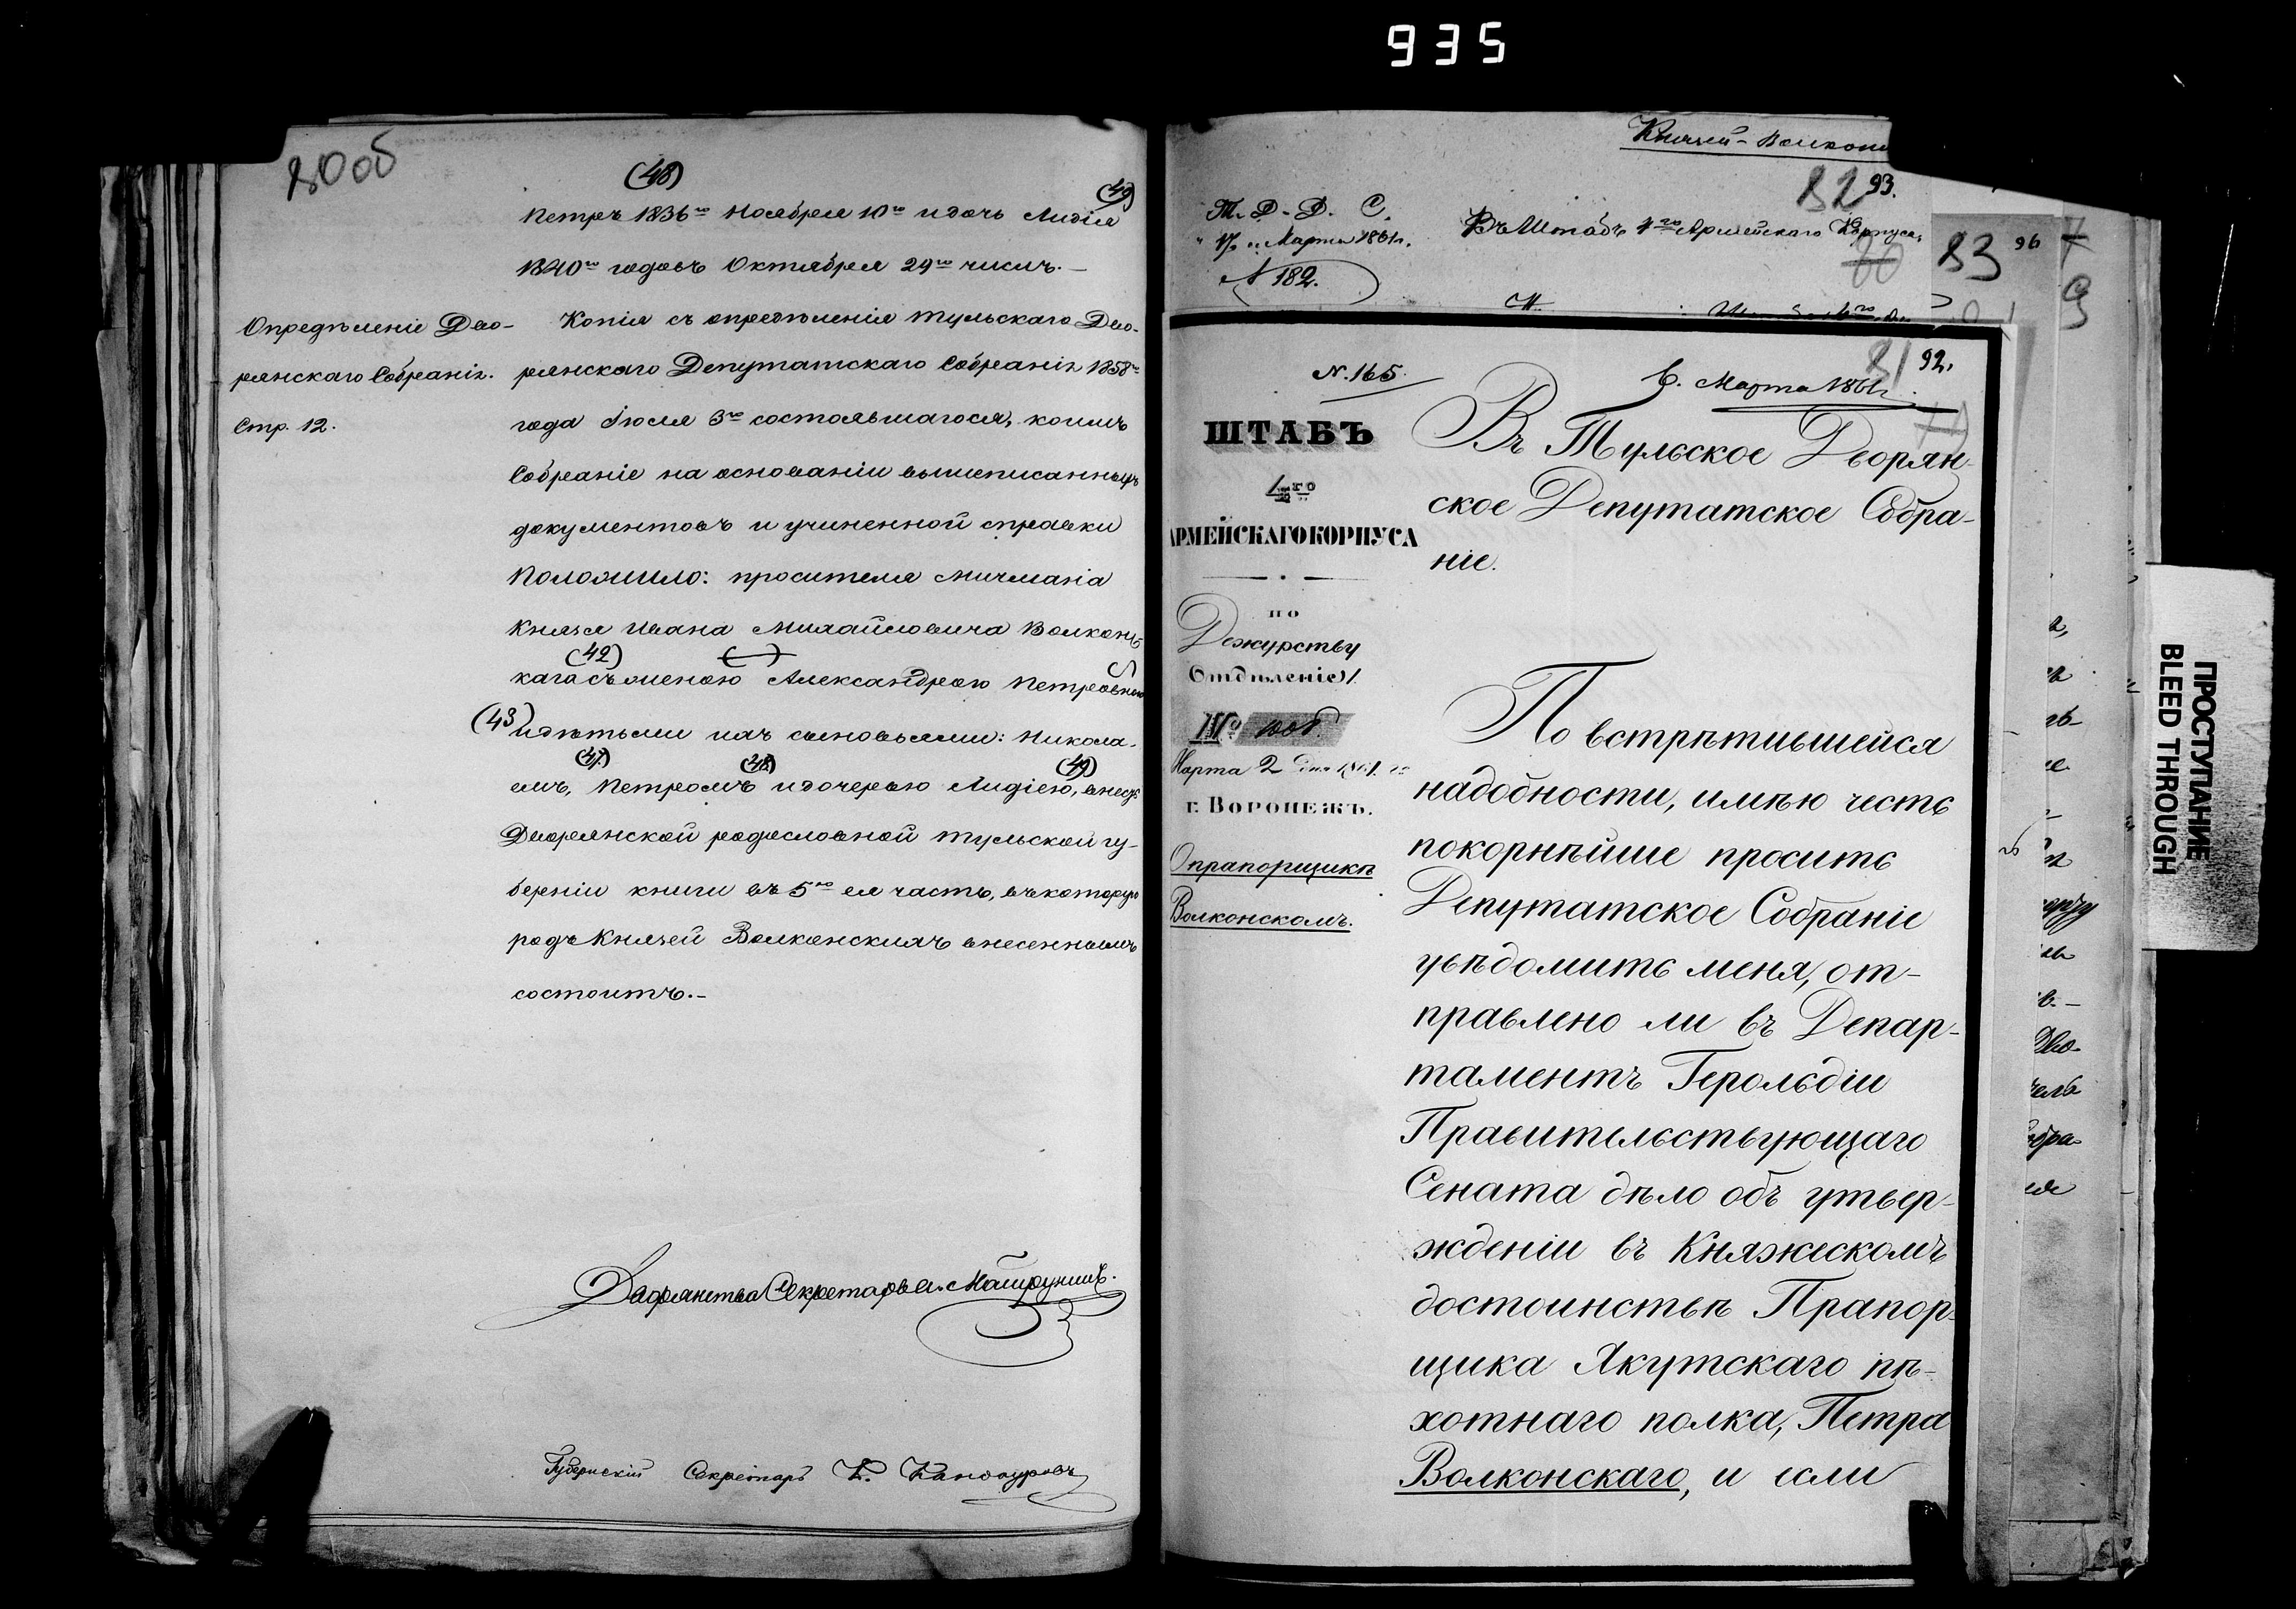 935
80 об
(48)
(49)
Петръ 1836го Ноября 10го и дочь Лидія
1840го годовъ Октября 29го числъ.—
Опредѣленіе Дво-
рянскаго Собранія.
Стр. 12.
Копія съ опредѣленія Тульскаго Дво-
рянскаго Депутатскаго Собранія 1858го
года Іюля 3го состоявшагося, коимъ
Собраніе на основаніи вышеписанныхъ
документовъ и учиненной справки
Положило: просителя Мичмана
Князя Ивана Михайловича Волконс-
(42)
каго съ женою Александрою Петровною
(43) и дѣтьми ихъ сыновьями: Никола-
(47) (48) (49)
емъ, Петромъ и дочерью Лидіею, внесть
Дворянской родословной Тульской гу-
берніи книги въ 5ю ея часть, въ которую
родъ Князей Волконскихъ внесеннымъ
состоитъ.—
Дворянства Секретарь
Губернскій Секретарь К.
Князей-Волконс
82 93.
Т. Д. Д. С.
17 Марта 1861 г.
№ 182.
Въ Штабъ 4го Армейскаго Корпуса,
80
83 96
7
9
81 92.
№ 165.
6. Марта 1861 г.
ШТАБЪ
4го
АРМЕЙСКАГО КОРПУСА
по
Дежурству
Отдѣленіе 1.
№ 1008.
Марта 2 дня 1861 го
г. Воронежъ.
О прапорщикѣ
Волконскомъ.
Въ Тульское Дворян-
ское Депутатское Собра-
ніе.
По встрѣтившейся
надобности, имѣю честь
покорнѣйше просить
Депутатское Собраніе
увѣдомить меня, от-
правлено ли въ Депар-
таментъ Герольдіи
Правительствующаго
Сената дѣло объ утвер-
жденіи въ Княжескомъ
достоинствѣ Прапор-
щика Якутскаго пѣ-
хотнаго полка, Петра
Волконскаго, и если
ПРОСТУПАНИЕ
BLEED THROUGH